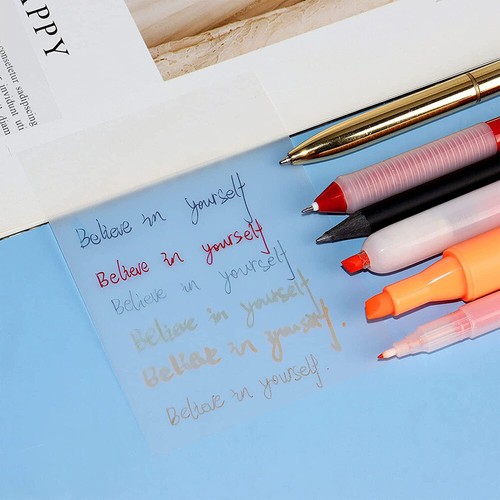 APPY
consetetur sadipscing
invidunt ut
diam
Believe in yourself
Believe in yourself
Believe in yourself
Believe in yourself
Believe in yourself.
Believe in yourself.